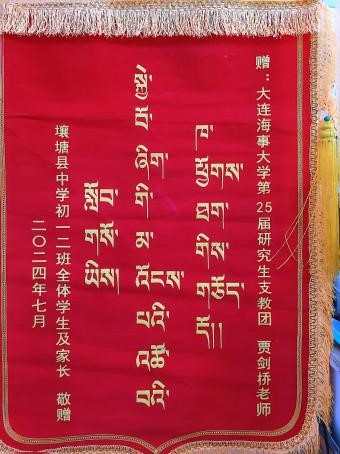 赠：大连海事大学第25届研究生支教团 贾剑桥老师
སློབ་གསོ་ཡིས།
སྐྱེ་བོ་ཞིག་གི་མ་འོངས་པའི་འཚོ་བའི་
ཁ་ཕྱོགས་ཐག་གིས་གཅོད་དོ།།
壤塘县中学初一二班全体学生及家长 敬赠
二〇二四年七月